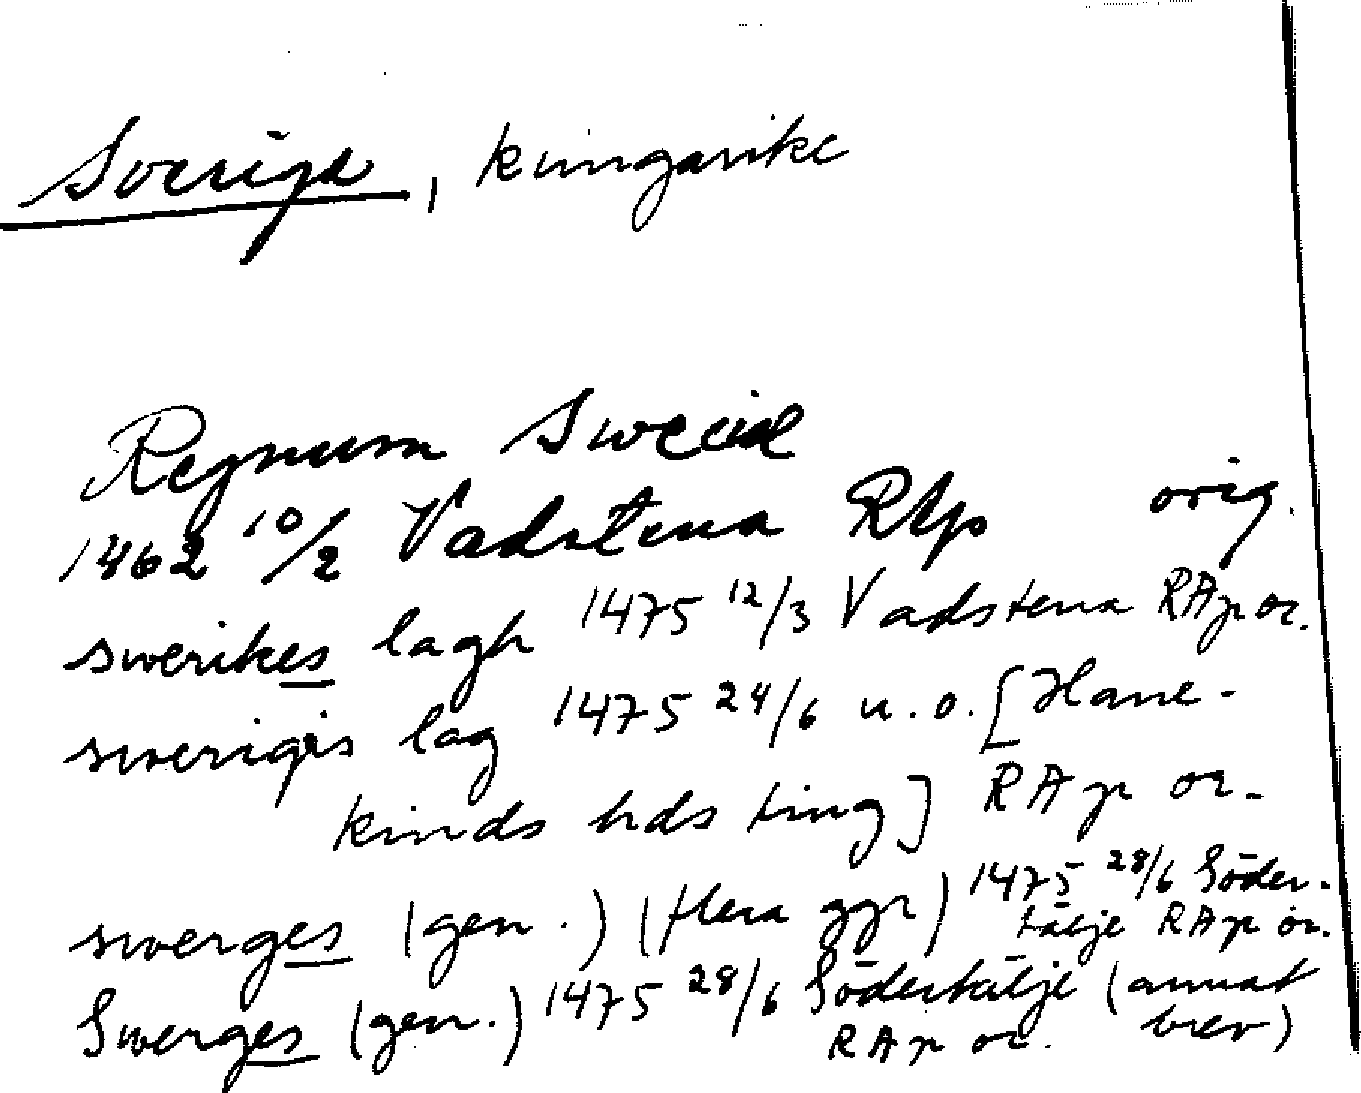 Sverige, kungarike
Regnum Sweciae
1462 10/2 Vadstena RAp orig.
swerikes lagh 1475 12/3 Vadstena RAp or.
swerigis lag 1475 24/6 u.o. [Hane-
kinds hds ting] RAp or.
swerges (gen.) (flera ggr) 1475 28/6 Söder-
tälje RAp or.
Swerges (gen.) 1475 28/6 Södertälje (annat
RAp or. brev)